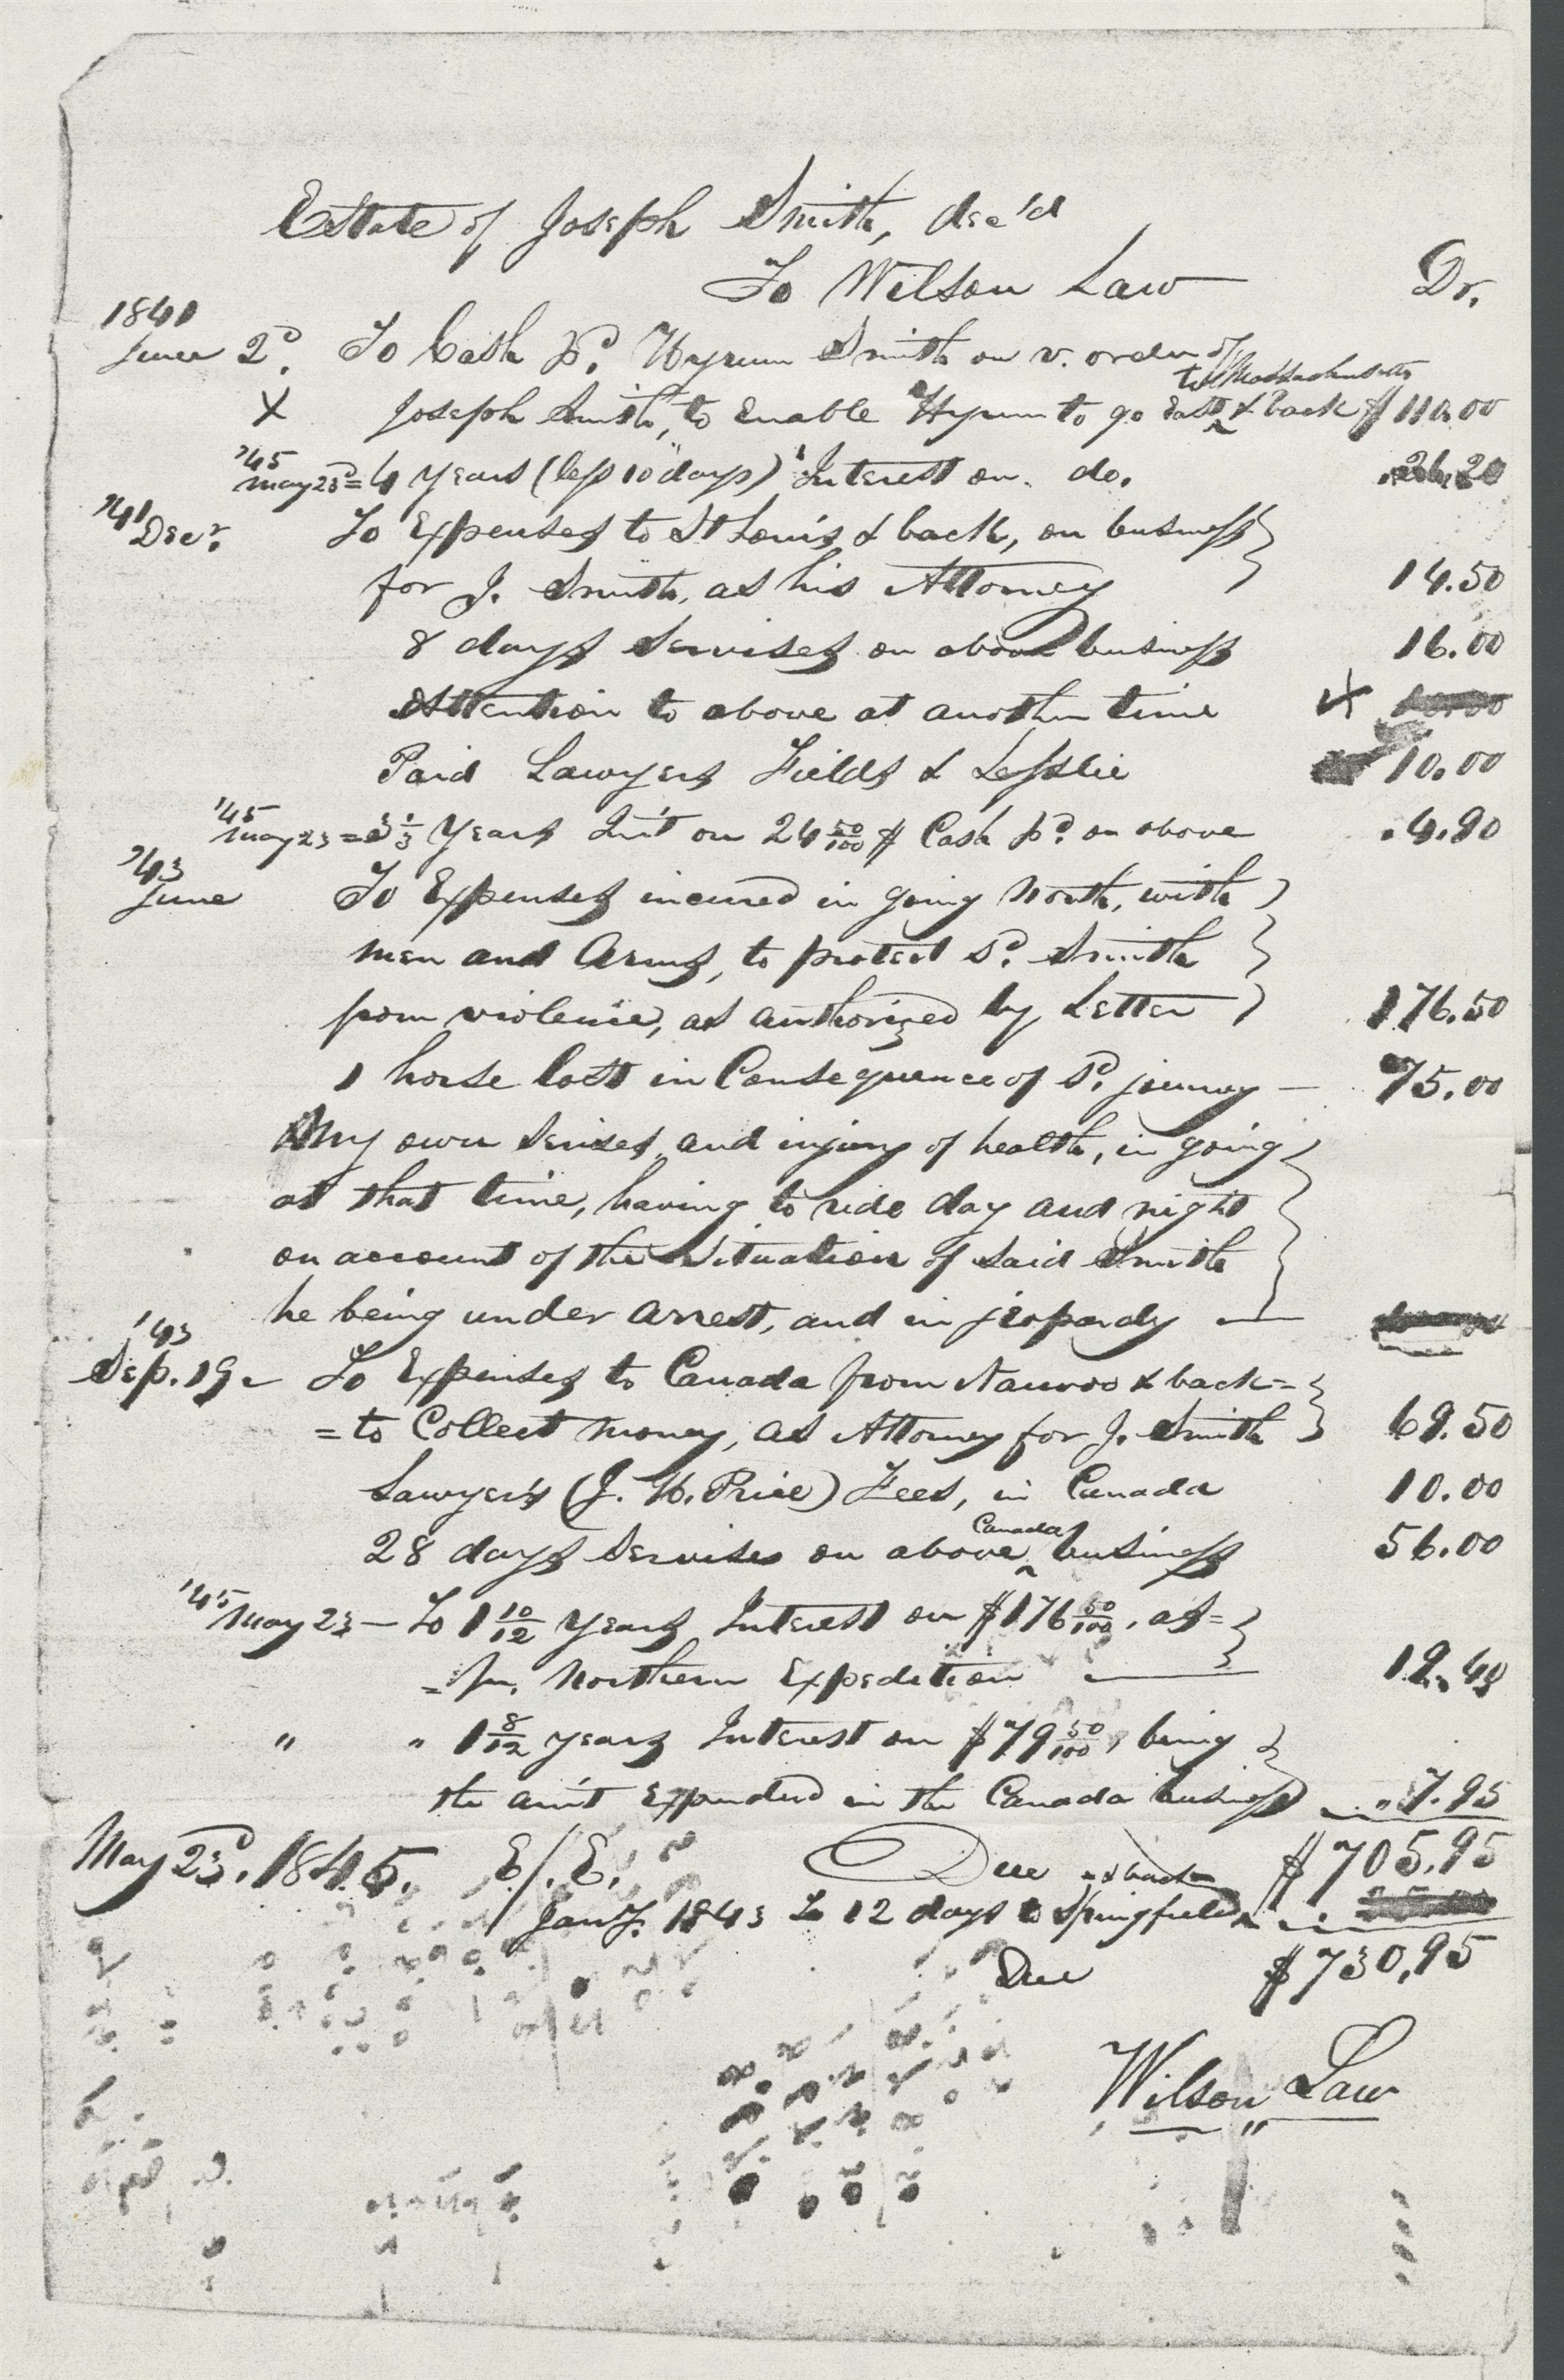 Estate of Joseph Smith, dec'd
To Wilson Law Dr.
1841
June 2d. To Cash pd. Hyrum Smith on v. order of
to Massachusetts
X Joseph Smith, to Enable Hyrum to go East & back $ 110.00
'45
May 23d = 4 Years (less 10 days) Interest on do. .26.20
'41
Decr. To Expenses to St Louis & back, on business
for J. Smith, as his Attorney 14.50
8 days Servises on above business 16.00
Attention to above at another time X 10.00
Paid Lawyers Fields & Lesslie 10.00
'45
May 23 = 3 1/3 Years Int on 24 50/100 $ Cash pd. on above .4.90
'43
June To Expenses incured in going North, with
men and Arms, to protect sd. Smith
from violence, as authorized by Letter 176.50
1 horse lost in Consequence of sd. journey — 75.00
My own Servises, and injury of health, in going
at that time, having to ride day and night
on account of the Situation of said Smith
he being under arrest, and in jeopardy —
'43
Sep. 19. To Expenses to Canada from Nauvoo & back =
= to Collect money, as Attorney for J. Smith 69.50
Lawyer's (J. H. Price) Fees, in Canada 10.00
Canada
28 days Servises on above business 56.00
'45
May 23 — To 1 10/12 Years Interest on $176 50/100, as =
= pr. Northern Expedition — 19.40
" " 1 8/12 years Interest on $79 50/100, being
the am't Expended in the Canada business " 7.95
May 23d. 1845. E/.E. Due $705.95
& back
Jany. 1843 To 12 days to Springfield
Due $730.95
Wilson Law